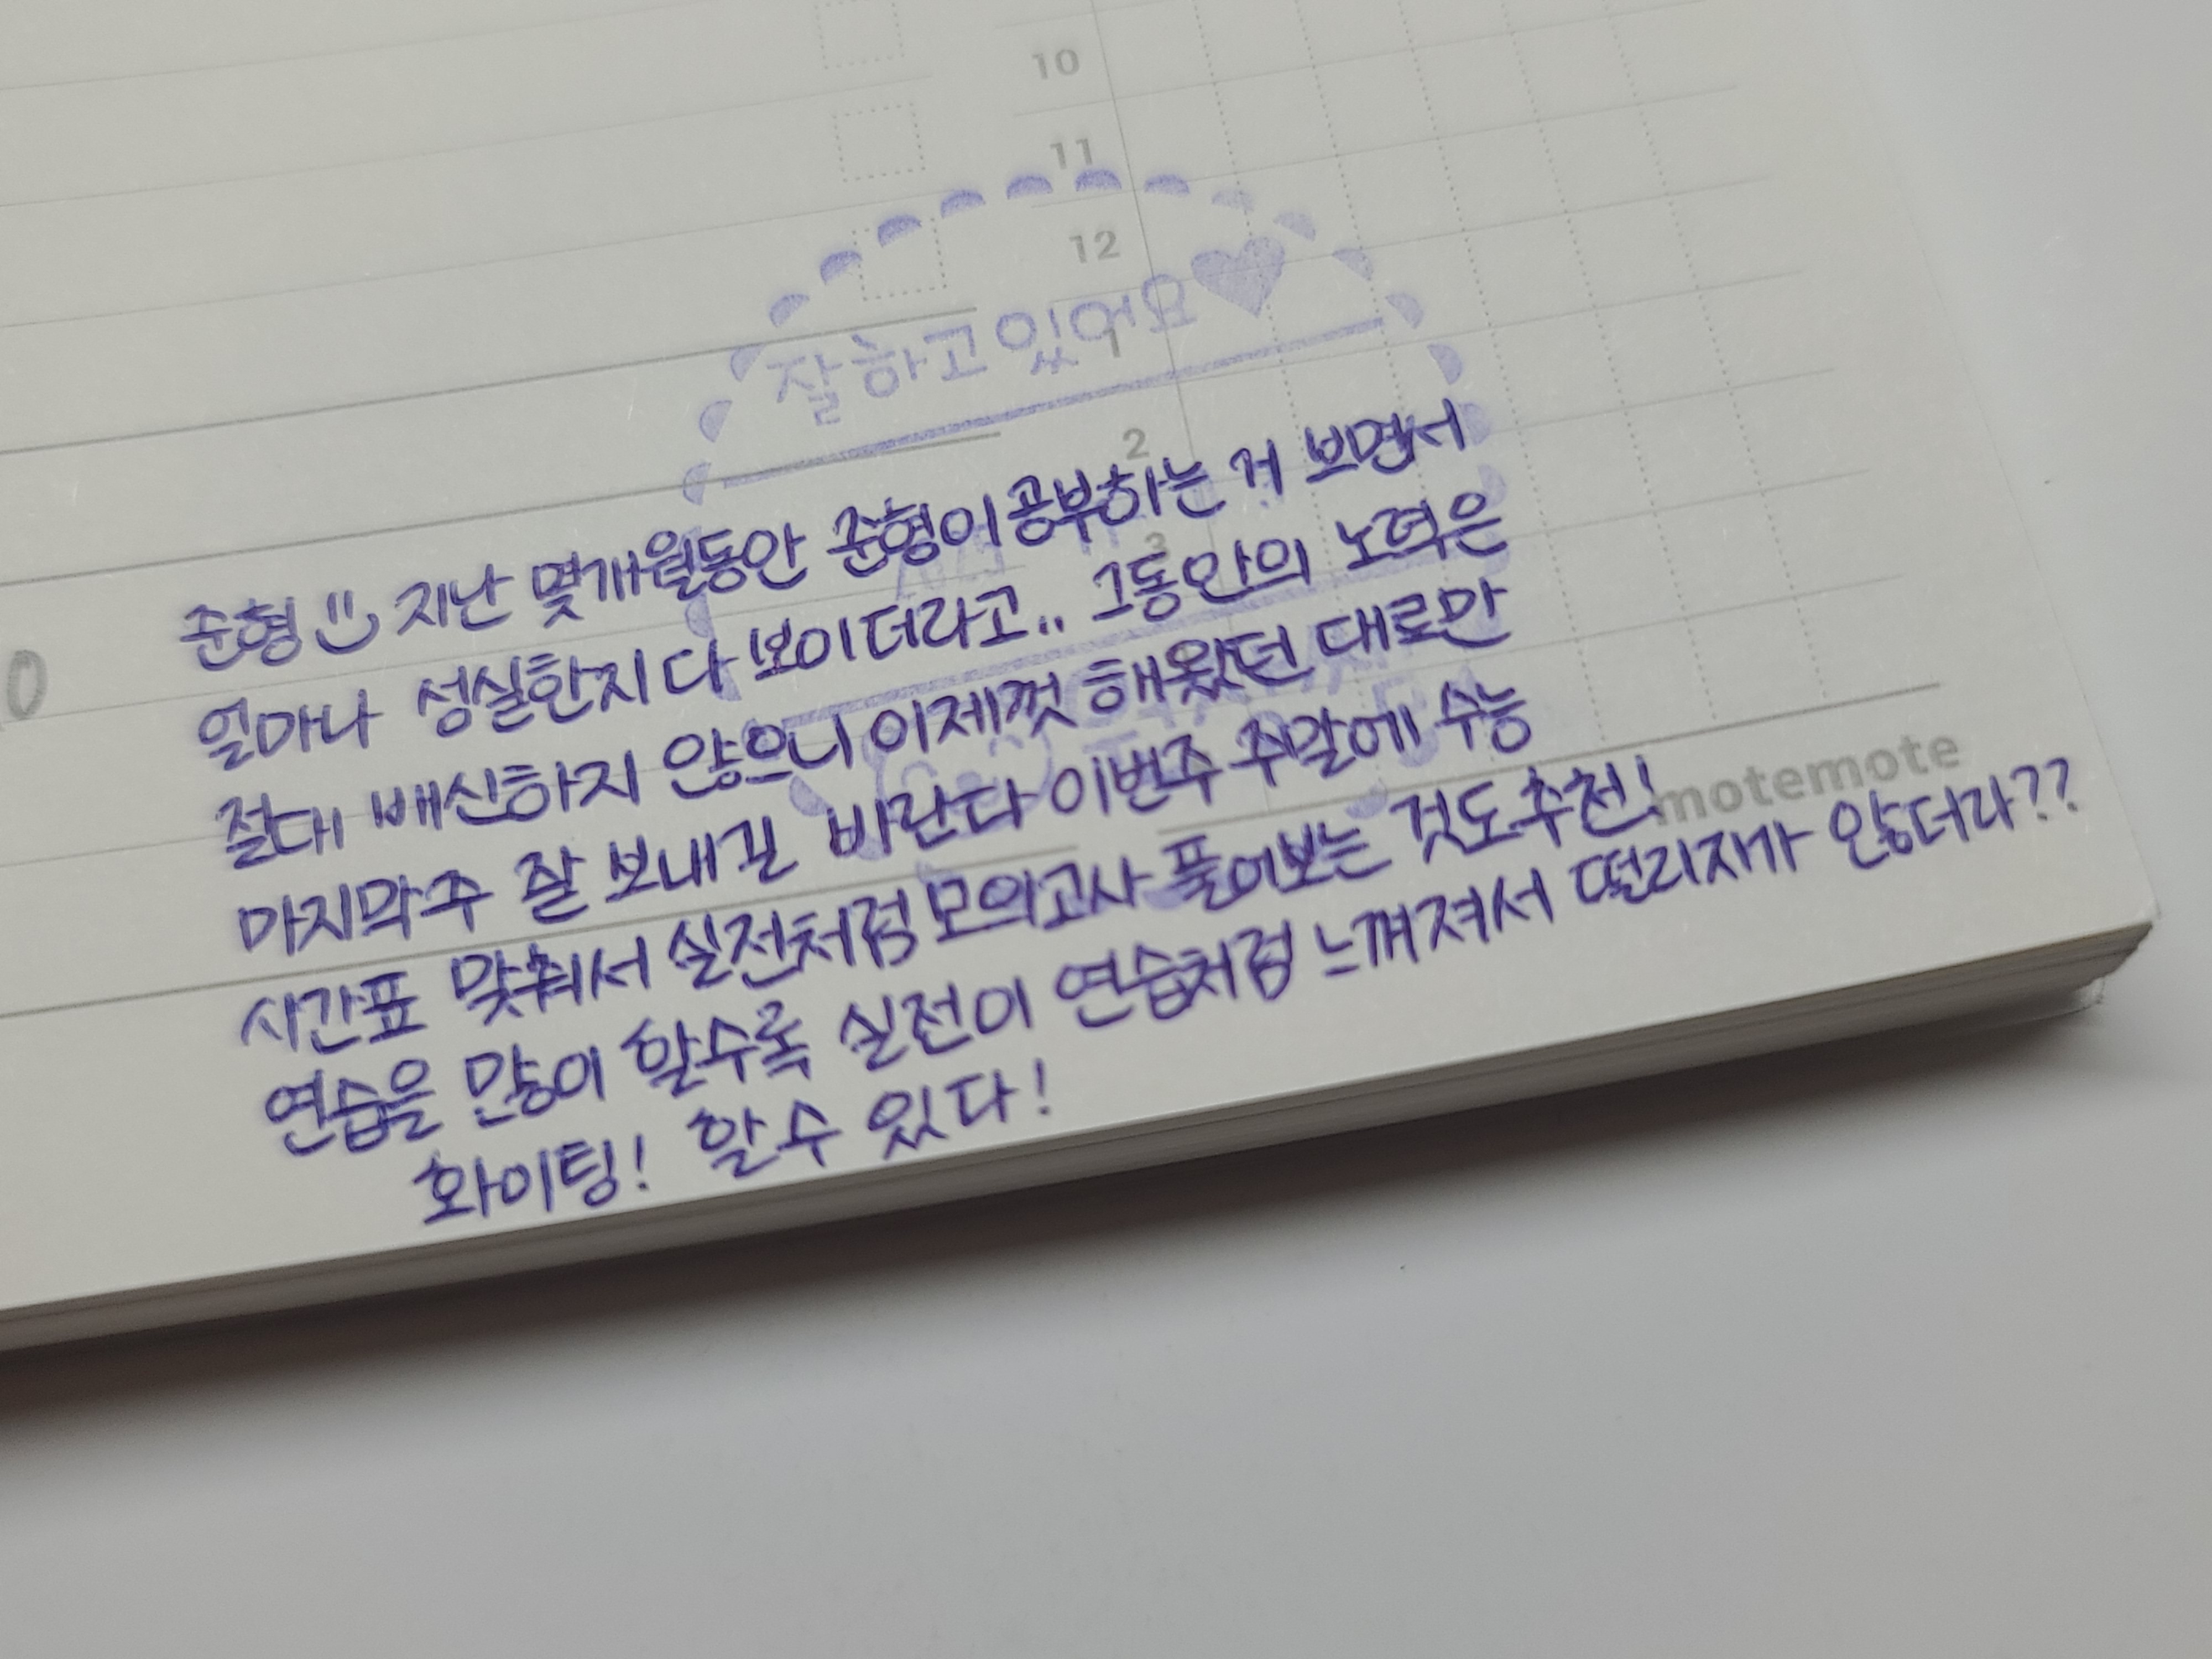 10
11
12
잘하고 있어요
1
2
3
준형 지난 몇개월동안 준형이 공부하는 거 보면서
얼마나 성실한지 다 보이더라고.. 그동안의 노력은
절대 배신하지 않으니 이제껏 해왔던 대로만
마지막주 잘 보내길 바란다 이번주 주말에 수능
시간표 맞춰서 실전처럼 모의고사 풀어보는 것도 추천!
연습을 많이 할수록 실전이 연습처럼 느껴져서 떨리지가 않더라??
화이팅! 할 수 있다!
motemote
0